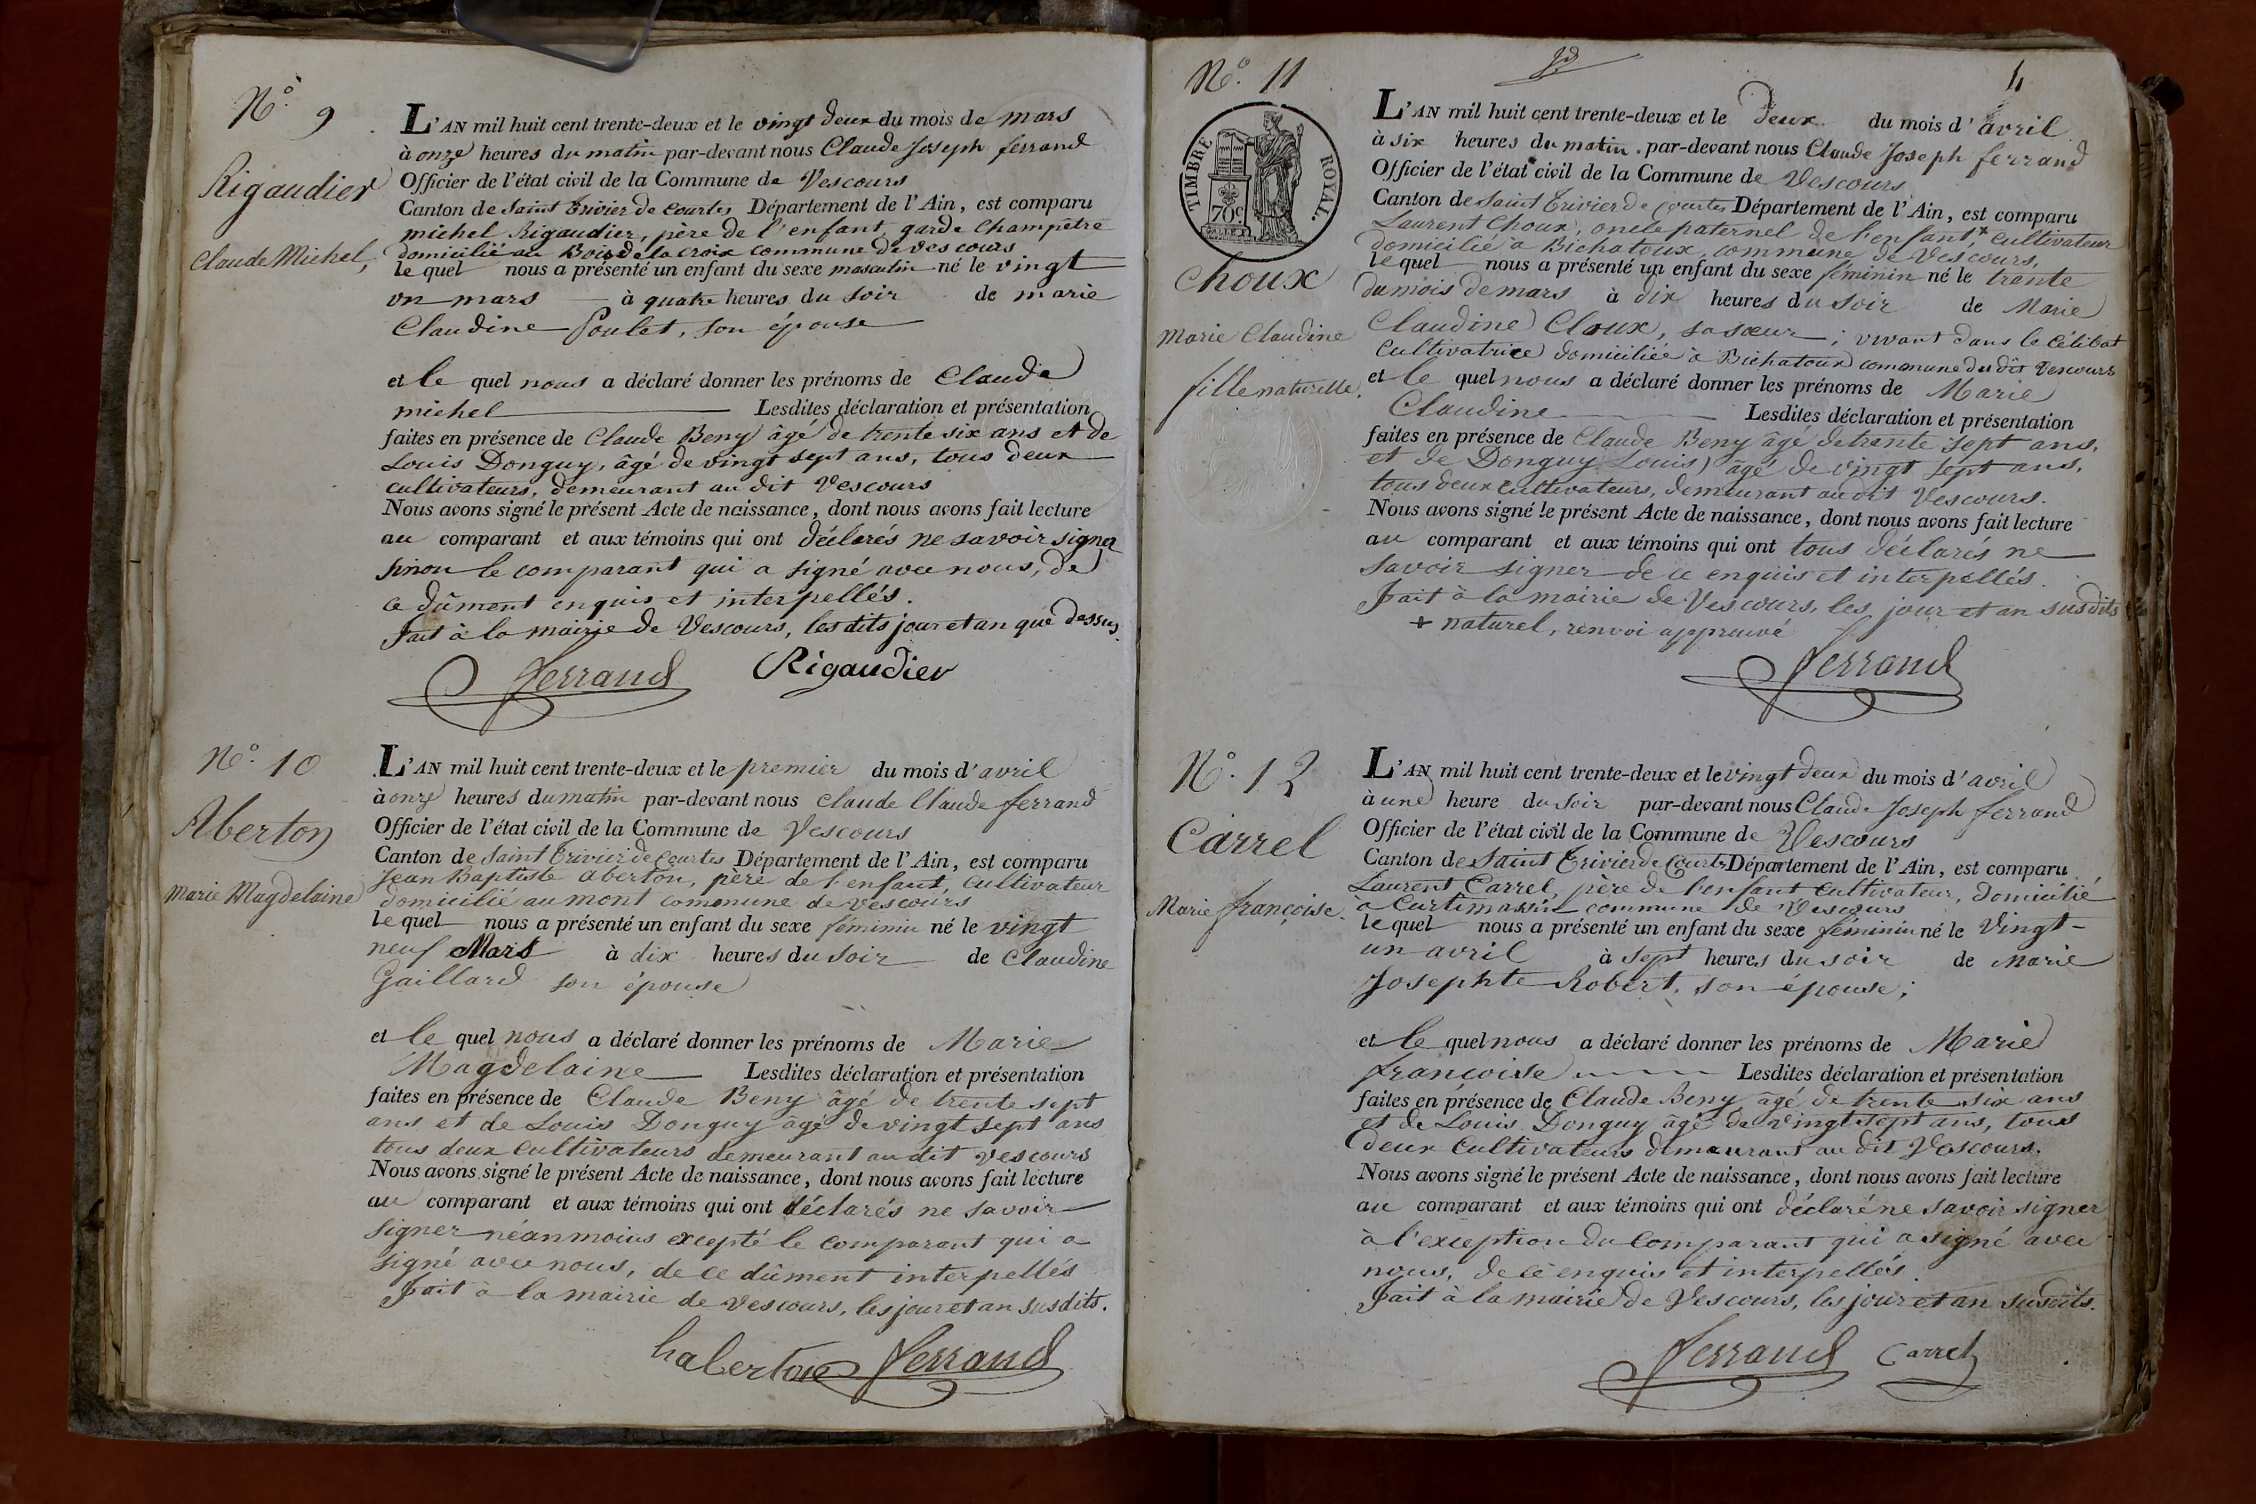 N.º 9
Rigaudier
Claude Michel,
L'AN mil huit cent trente-deux et le vingt deux du mois de mars
à onze heures du matin par-devant nous Claude Joseph ferrand
Officier de l'état civil de la Commune de Vescours
Canton de Saint Trivier de Courtes Département de l'Ain, est comparu
michel Rigaudier, père de l'enfant, garde Champêtre
domicilié au Bois de la croix commune de vescours
le quel nous a présenté un enfant du sexe masculin né le vingt
un mars à quatre heures du soir de marie
Claudine Poulet, son épouse
et le quel nous a déclaré donner les prénoms de Claude
michel Lesdites déclaration et présentation
faites en présence de Claude Beny âgé de trente six ans et de
Louis Donguy, âgé de vingt sept ans, tous deux
cultivateurs, demeurant au dit Vescours
Nous avons signé le présent Acte de naissance, dont nous avons fait lecture
au comparant et aux témoins qui ont déclarés ne savoir signer
sinon le comparant qui a signé avec nous, de
ce dûment enquis et interpellés.
fait à la mairie de Vescours, les dits jour et an que dessus.
ferrand Rigaudier
N.º 10
Aberton
Marie Magdelaine
L'AN mil huit cent trente-deux et le premier du mois d'avril
à onze heures du matin par-devant nous Claude Claude ferrand
Officier de l'état civil de la Commune de Vescours
Canton de Saint Trivier de Courtes Département de l'Ain, est comparu
Jean Baptiste aberton, père de l'enfant, cultivateur
domicilié au mont commune de vescours
le quel nous a présenté un enfant du sexe féminin né le vingt
neuf Mars à dix heures du soir de Claudine
Gaillard son épouse
et le quel nous a déclaré donner les prénoms de Marie
Magdelaine Lesdites déclaration et présentation
faites en présence de Claude Beny âgé de trente sept
ans et de Louis Donguy âgé de vingt sept ans
tous deux cultivateurs demeurant au dit vescours
Nous avons signé le présent Acte de naissance, dont nous avons fait lecture
au comparant et aux témoins qui ont déclarés ne savoir
signer néanmoins excepté le comparant qui a
signé avec nous, de ce dûment interpellés
fait à la mairie de Vescours, les jour et an susdits.
haberton ferrand
4
N.º 11
TIMBRE ROYAL.
70c
Choux
Marie Claudine
fille naturelle.
L'AN mil huit cent trente-deux et le Deux du mois d'avril
à six heures du matin par-devant nous Claude Joseph ferrand
Officier de l'état civil de la Commune de Vescours
Canton de Saint Trivier de Courtes Département de l'Ain, est comparu
Laurent Choux, oncle paternel de l'enfant,+ cultivateur
domicilié à Bichatoux, commune de Vescours,
le quel nous a présenté un enfant du sexe féminin né le trente
du mois de mars à dix heures du soir de Marie
Claudine Cloux, sa sœur; vivant dans le Célibat
Cultivatrice domiciliée à Bichatoux commune du dit Vescours
et le quel nous a déclaré donner les prénoms de Marie
Claudine Lesdites déclaration et présentation
faites en présence de Claude Beny âgé de trente sept ans,
et de Donguy Louis, âgé de vingt sept ans,
tous deux cultivateurs, demeurant au dit Vescours.
Nous avons signé le présent Acte de naissance, dont nous avons fait lecture
au comparant et aux témoins qui ont tous déclarés ne
savoir signer de ce enquis et interpellés.
fait à la mairie de Vescours, les jour et an susdits
+ naturel, renvoi approuvé
ferrand
N.º 12
Carrel
Marie françoise.
L'AN mil huit cent trente-deux et le vingt deux du mois d'avril
à une heure du soir par-devant nous Claude Joseph ferrand
Officier de l'état civil de la Commune de Vescours
Canton de Saint Trivier de Courtes Département de l'Ain, est comparu
Laurent Carrel, père de l'enfant cultivateur, domicilié
à Curtimassin commune de Vescours
le quel nous a présenté un enfant du sexe féminin né le Vingt-
un avril à sept heures du soir de Marie
Josephte Robert, son épouse;
et le quel nous a déclaré donner les prénoms de Marie
françoise Lesdites déclaration et présentation
faites en présence de Claude Beny âgé de trente six ans
et de Louis Donguy âgé de vingt sept ans, tous
deux Cultivateurs demeurant au dit Vescours.
Nous avons signé le présent Acte de naissance, dont nous avons fait lecture
au comparant et aux témoins qui ont déclaré ne savoir signer
à l'exception du comparant qui a signé avec
nous, de ce enquis et interpellés.
fait à la mairie de Vescours, les jour et an susdits.
ferrand Carrel